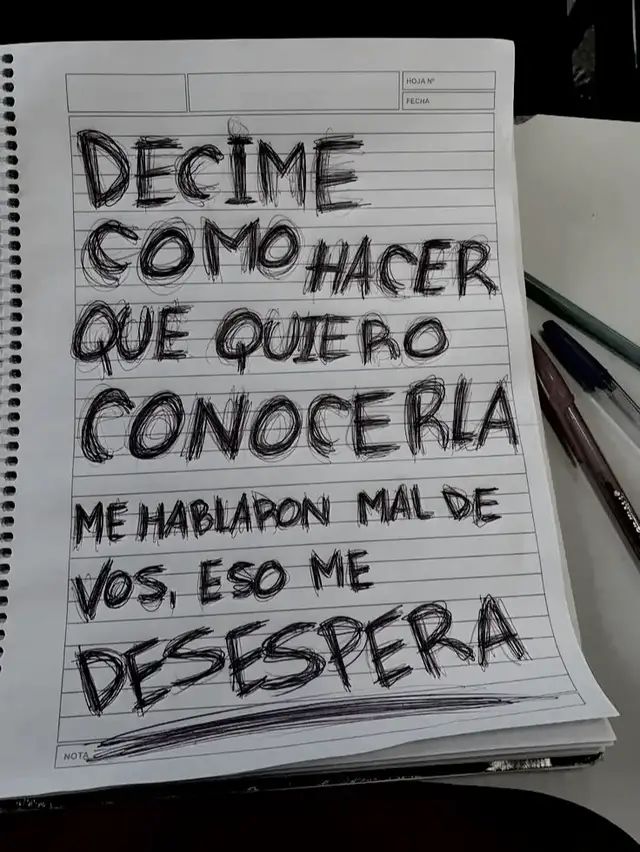 HOJA Nº
FECHA
DECIME
COMO HACER
QUE QUIERO
CONOCERLA
ME HABLARON MAL DE
VOS, ESO ME
DESESPERA
NOTA